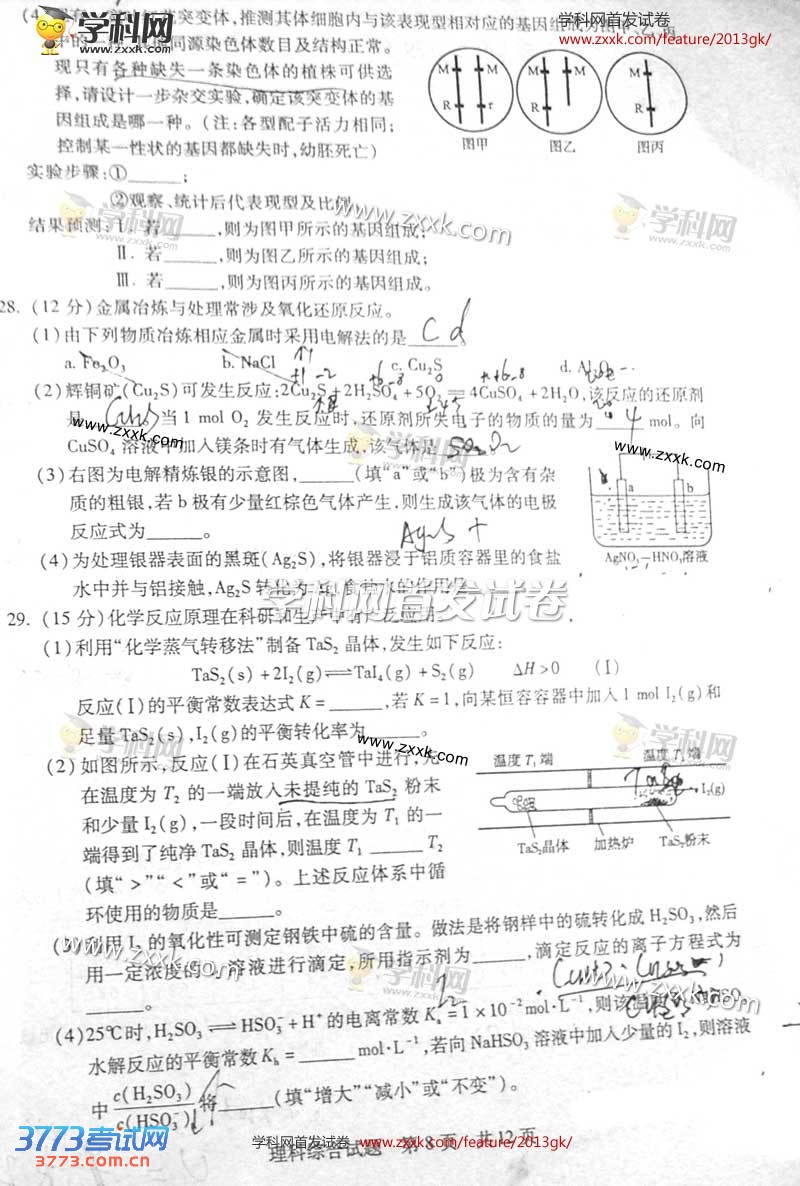 学科网首发试卷
www.zxxk.com/feature/2013gk/
同源染色体数目及结构正常。
现只有各种缺失一条染色体的植株可供选
择,请设计一步杂交实验,确定该突变体的基
因组成是哪一种。(注:各型配子活力相同;
控制某一性状的基因都缺失时,幼胚死亡)
M M M M M
R r R R
图甲 图乙 图丙
实验步骤:①______;
②观察、统计后代表现型及比例
结果预测:Ⅰ. 若______,则为图甲所示的基因组成;
Ⅱ. 若______,则为图乙所示的基因组成;
Ⅲ. 若______,则为图丙所示的基因组成。
28. (12 分)金属冶炼与处理常涉及氧化还原反应。
(1)由下列物质冶炼相应金属时采用电解法的是 C d
a. Fe₂O₃ b. NaCl c. Cu₂S d.
(2)辉铜矿(Cu₂S)可发生反应:2Cu₂S+2H₂SO₄+5O₂═4CuSO₄+2H₂O,该反应的还原剂
是 当 1 mol O₂ 发生反应时,还原剂所失电子的物质的量为 4 mol。向
CuSO₄ 溶液中加入镁条时有气体生成,该气体是
(3)右图为电解精炼银的示意图,______(填“a”或“b”)极为含有杂
质的粗银,若 b 极有少量红棕色气体产生,则生成该气体的电极
反应式为______。
a b
AgNO₃—HNO₃溶液
(4)为处理银器表面的黑斑(Ag₂S),将银器浸于铝质容器里的食盐
水中并与铝接触,Ag₂S 转化为
学科网首发试卷
29. (15 分)化学反应原理在科研和
(1)利用“化学蒸气转移法”制备 TaS₂ 晶体,发生如下反应:
TaS₂(s)+2I₂(g)⇌TaI₄(g)+S₂(g) ΔH>0 (Ⅰ)
反应(Ⅰ)的平衡常数表达式 K=______,若 K=1,向某恒容容器中加入 1 mol I₂(g)和
足量 TaS₂(s),I₂(g)的平衡转化率为______。
(2)如图所示,反应(Ⅰ)在石英真空管中进行,先
在温度为 T₂ 的一端放入未提纯的 TaS₂ 粉末
和少量 I₂(g),一段时间后,在温度为 T₁ 的一
端得到了纯净 TaS₂ 晶体,则温度 T₁ ______ T₂
(填“>”“<”或“=”)。上述反应体系中循
环使用的物质是______。
温度 T₁ 端 温度 端
I₂(g)
TaS₂晶体 加热炉 TaS₂粉末
(3)利用 I₂ 的氧化性可测定钢铁中硫的含量。做法是将钢样中的硫转化成 H₂SO₃,然后
用一定浓度的 溶液进行滴定,所用指示剂为______,滴定反应的离子方程式为
______。
(4)25℃时,H₂SO₃⇌HSO₃⁻+H⁺的电离常数 Kₐ=1×10⁻²mol·L⁻¹,则该
水解反应的平衡常数 Kₕ=______mol·L⁻¹,若向 NaHSO₃ 溶液中加入少量的 I₂,则溶液
中 c(H₂SO₃)/c(HSO₃⁻) 将______(填“增大”“减小”或“不变”)。
学科网首发试卷 www.zxxk.com/feature/2013gk/
理科综合试题 第 8 页 共 12 页
3773考试网
3773.com.cn
学科网
www.zxxk.com